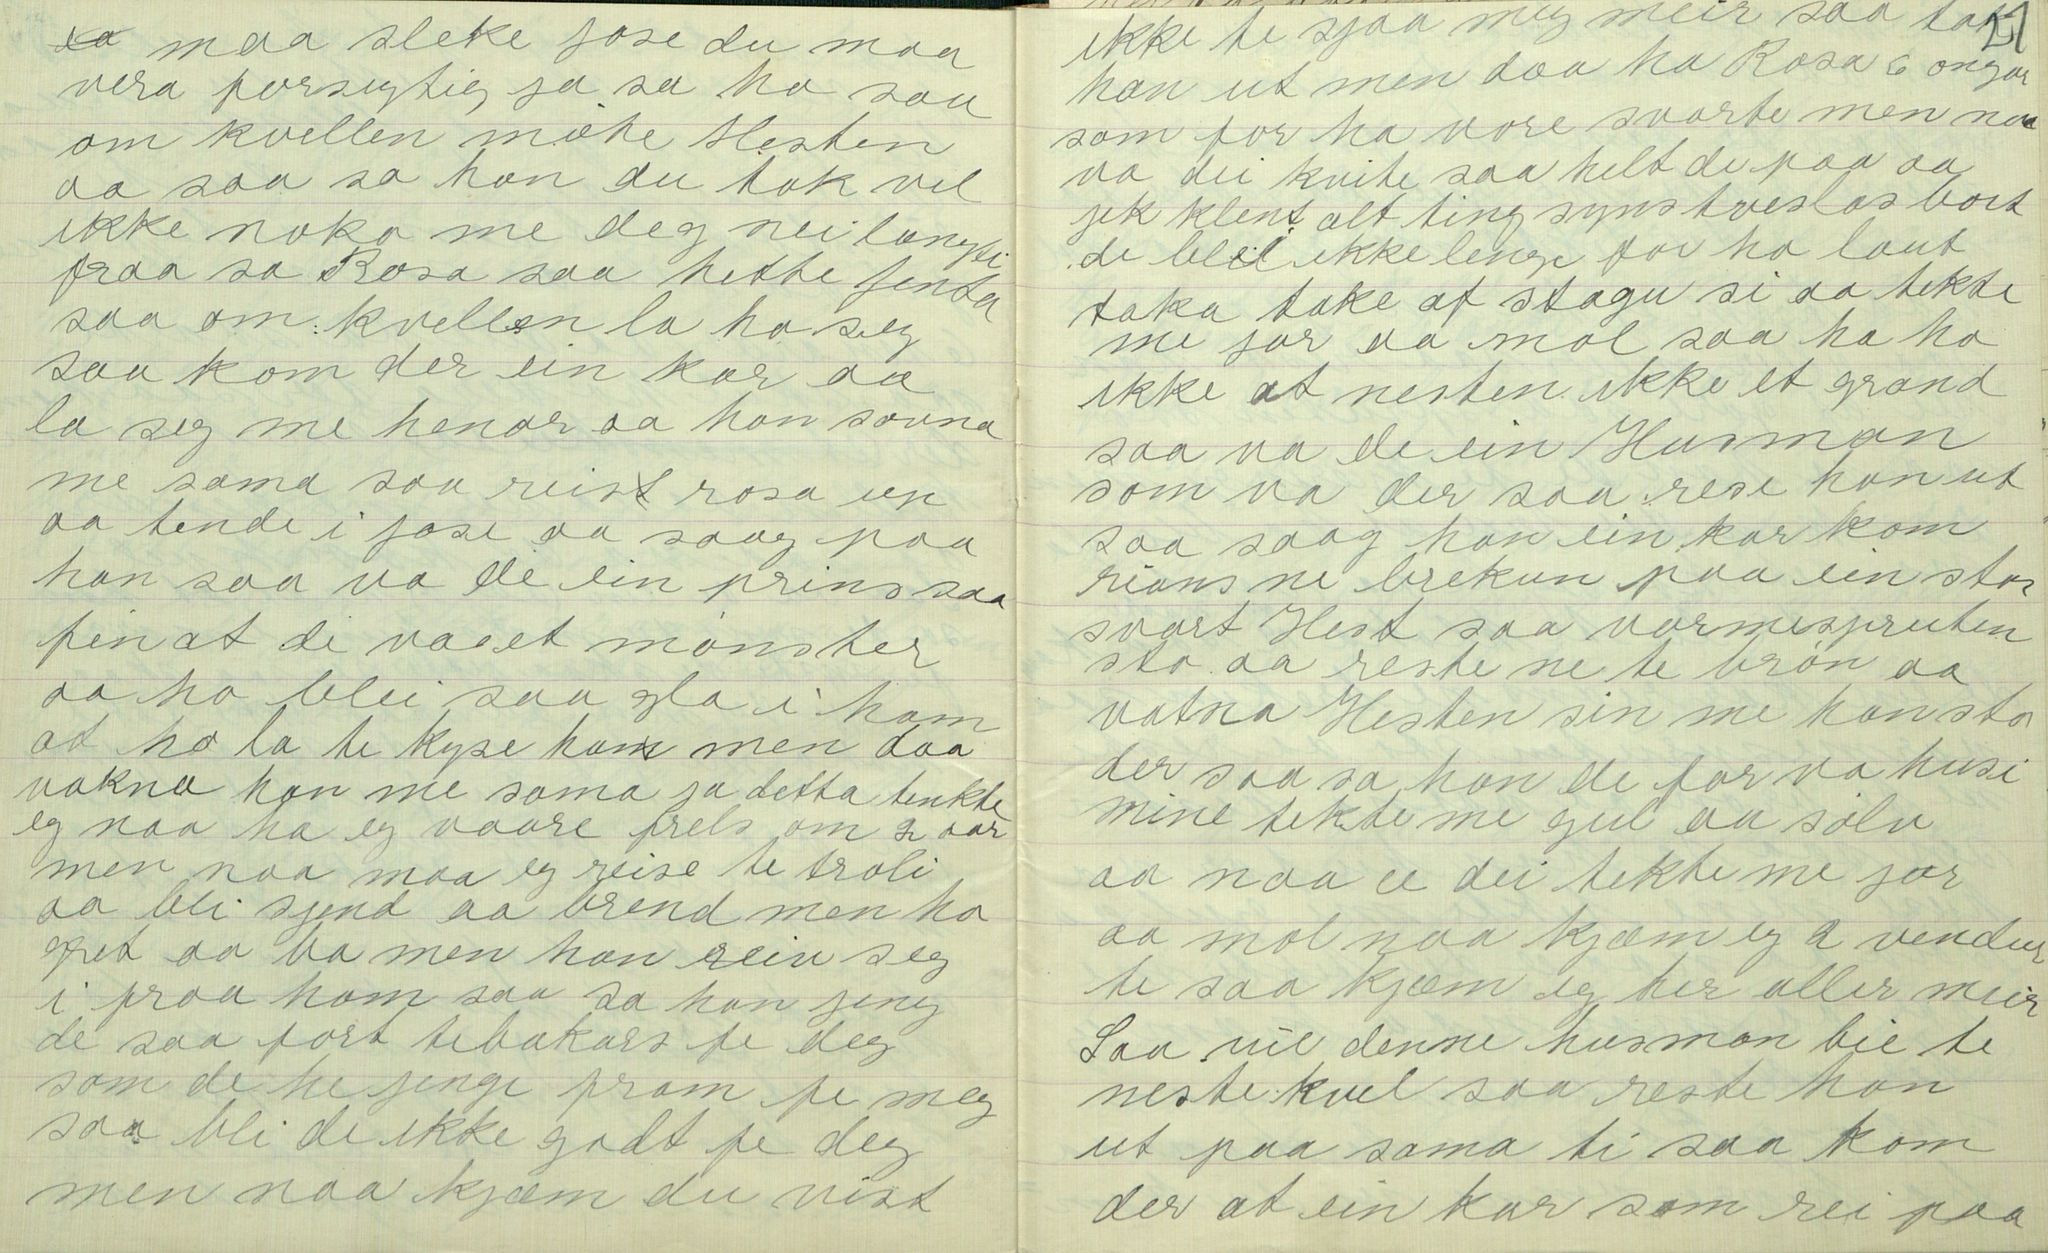 maa sleke jose du maa
vera forsugtig ja sa ho saa
om kvellen møte Hesten
aa saa sa han du tok vel
ikke noko me deg nei langt i
fraa sa Rosa saa hette jenta
saa om kvellen la ho seg
saa kom der ein kar aa
la seg me henar aa han sovna
me sama saa reist rosa up
aa tende i jose aa saag paa
han saa va de ein prins saa
fin at de va et mønster
aa ho blei saa gla i ham
at ho la te kyse han men daa
vakna han me sama ja detta tenkte
eg naa ha eg vaare frels om 2 aar
men naa maa eg reise te troli
aa bli sjend aa brend men ho
gret aa ba men han reiv seg
i fraa hom saa sa han jeng
de saa fort tebakars fe deg
som de he jenge fram fe meg
saa bli de ikke godt fe deg
men naa kjæm du vist
27
ikke te sjaa meg meir saa
han ut men daa ha Rosa 6 ongar
som for ha vore svarte men naa
va dei kvite saa helt de paa aa
jek klent alt ting synstveslas bort
de blei ikke lenge for ho laut
taka take af stagu si aa tekte
me jor aa mol saa ha ho
ikke at nesten ikke et grand
saa va de ein Husman
som va der saa rese han ut
saa saag han ein kar kom
rians ne brekun paa ein stor
svart Hest saa varmespruten
sto aa reste ne te brøn aa
vatna Hesten sin me han sto
der saa sa han de for va husi
mine tekte me gul aa sølv
aa naa er dei tekte me jor
aa mol naa kjæm eg 2 vendur
te saa kjæm eg her aller meir
Saa vil denne husman bie te
neste kvel saa reste han
ut paa sama ti saa kom
der at ein kar som rei paa